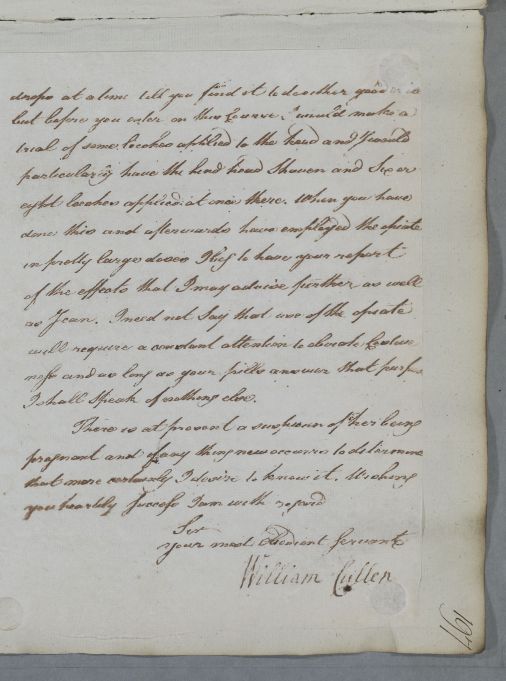 drops at a time till you find it to do either good or ill
but before you enter on this Course, I would make a
trial of some leeches applied to the head and I would
particularly have the hind head Shaven and Six or
eight leeches applied at once there. When you have
done this and afterwards have employed the opiate
in pretty large doses I beg to have your report
of the effects that I may advise further as well
as I can. I need not Say that use of the opiate
will require a constant attention to obviate Costive
ness and as long as your pills answer that purpose
I shall Speak of nothing else.
There is at present a suspicion of her being
pregnant and if any thing new occurrs to determine
that more certainly I desire to know it. Wishing
you heartily Success I am with regard
Sir
Your most Obedient Servant
William Cullen
197